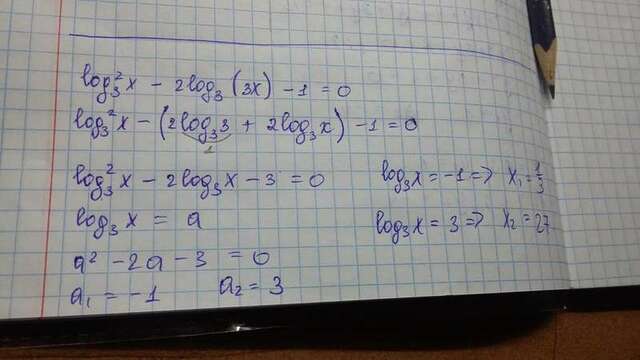 log₃²x − 2log₃(3x) − 1 = 0
log₃²x − (2log₃3 + 2log₃x) − 1 = 0
1
log₃²x − 2log₃x − 3 = 0
log₃x = a
a² − 2a − 3 = 0
a₁ = −1 a₂ = 3
log₃x = −1 => x₁ = 1/3
log₃x = 3 => x₂ = 27